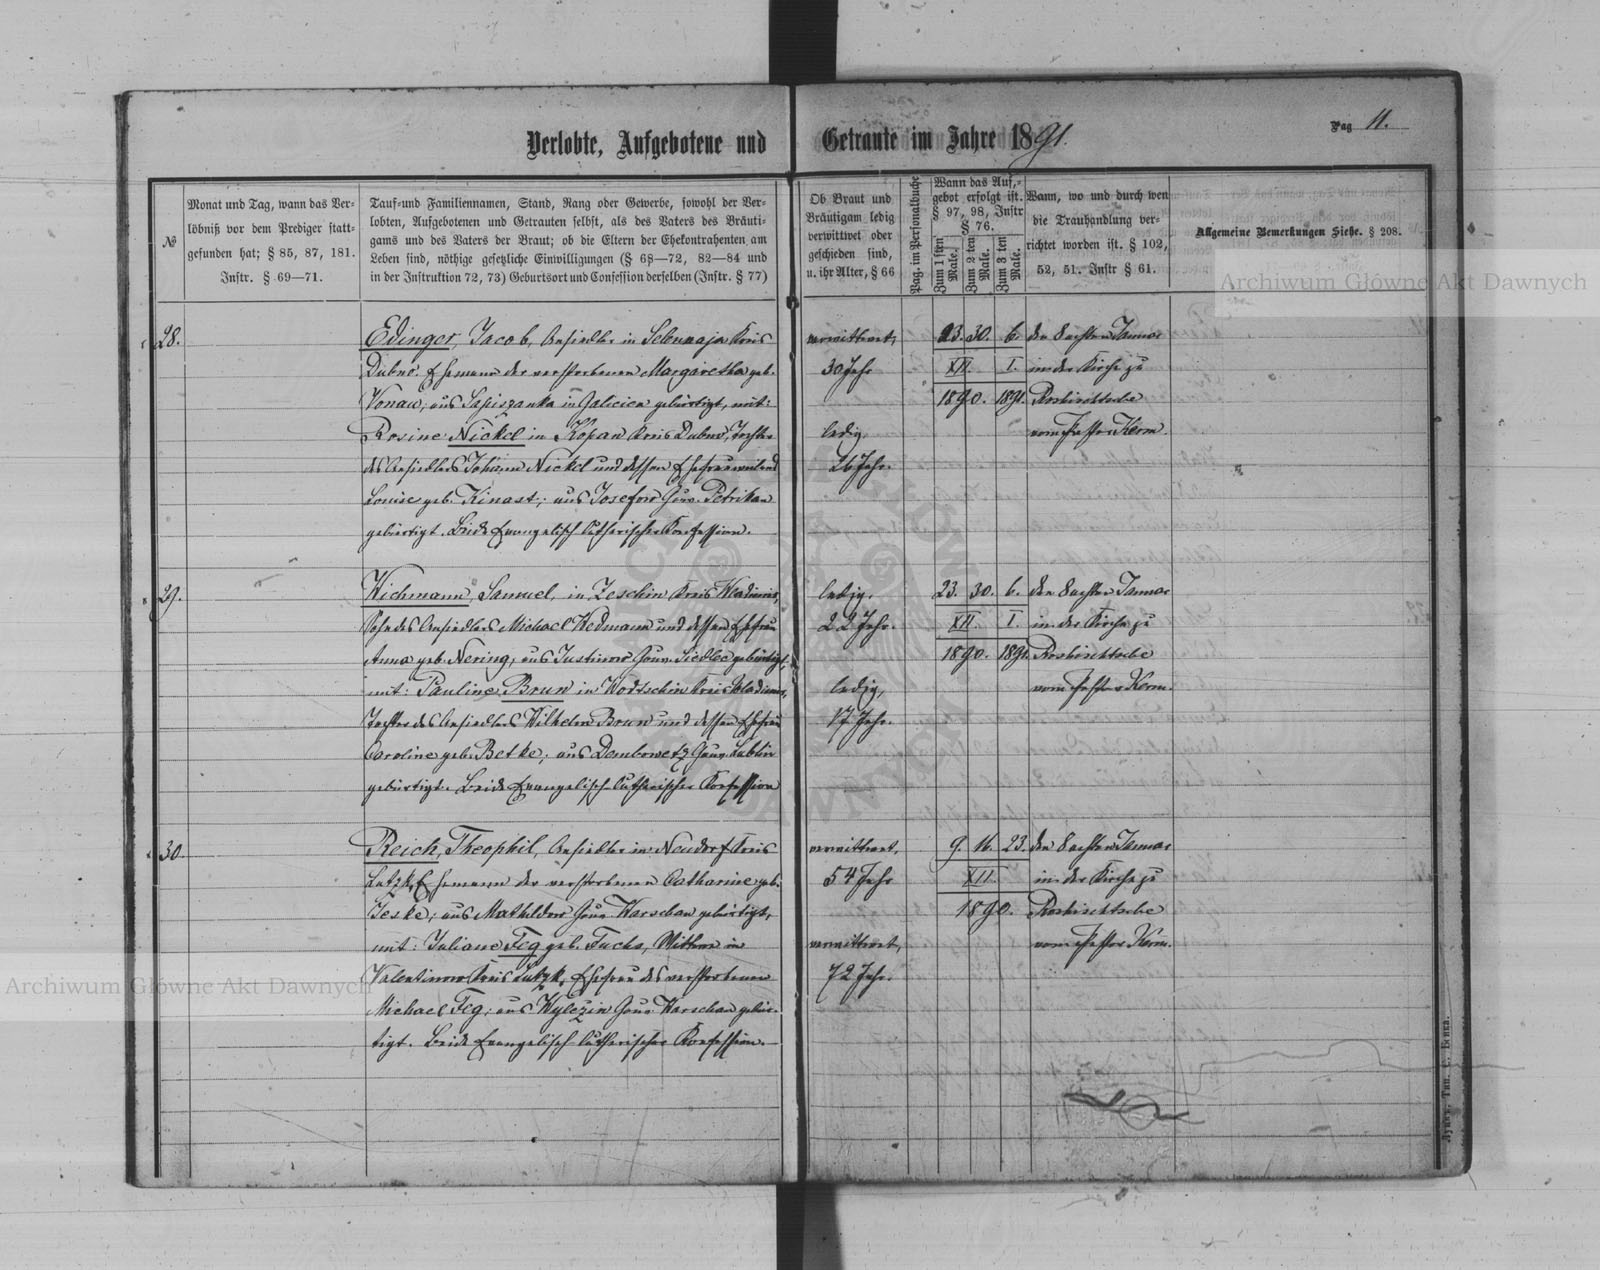 Verlobte, Aufgebotene und Getraute im Jahre 1891.
Pag 11.
№
Monat und Tag, wann das Ver-
löbniß vor dem Prediger statt-
gefunden hat; § 85, 87, 181.
Instr. § 69—71.
Tauf-und Familiennamen, Stand, Rang oder Gewerbe, sowohl der Ver-
lobten, Aufgebotenen und Getrauten selbst, als des Vaters des Bräuti-
gams und des Vaters der Braut; ob die Eltern der Ehekontrahenten am
Leben sind, nöthige gesetzliche Einwilligungen (§ 68—72, 82—84 und
in der Instruktion 72, 73) Geburtsort und Confession derselben (Instr. § 77)
Ob Braut und
Bräutigam ledig
verwittwet oder
geschieden sind,
u. ihr Alter, § 66
Pag. im Personalbuche
Wann das Auf-
gebot erfolgt ist.
§ 97, 98, Instr
§ 76.
Zum 1 sten Male.
Zum 2 ten Male.
Zum 3 ten Male.
Wann, wo und durch wen
die Trauhandlung ver-
richtet worden ist. § 102,
52, 51. Instr § 61.
Allgemeine Bemerkungen Siehe. § 208.
28.
Edinger, Jacob, Ansiedler in Selenaja Kreis
Dubno. Ehemann der verstorbenen Margaretha geb.
Vonau, aus Sapiszanka in Galicien gebürtigt, mit:
Rosine Nickel in Kopan Kreis Dubno, Tochter
des Ansiedlers Johann Nickel und dessen Ehefrau weiland
Louise geb. Kinast; aus Josefow Gouv. Petrikau
gebürtigt. Beide Evangelisch lutherischer Konfession.
verwittwet,
30 Jahr
ledig,
26 Jahr.
23. 30. 6.
XII. I.
1890. 1891.
den 8 achten Januar
in der Kirche zu
Roshischtsche
vom Pastor Kerm.
29.
Wichmann, Samuel, in Zeschin Kreis Wladimir,
Sohn des Ansiedlers Michael Wedmann und dessen Ehefrau
Anna geb. Nering, aus Justinow Gouv. Siedlec gebürtigt,
mit: Pauline Brun in Wodtschin Kreis Wladimir,
Tochter des Ansiedlers Wilhelm Brun und dessen Ehefrau
Caroline geb. Betke, aus Dembowetz Gouv. Lublin
gebürtigt. Beide Evangelisch lutherischer Konfession
ledig,
22 Jahr.
ledig,
17 Jahr.
23. 30. 6.
XII. I.
1890. 1891.
den 8 achten Januar
in der Kirche zu
Roshischtsche
vom Pastor Kerm.
30.
Reich, Theophil, Ansiedler in Neudorf Kreis
Lutzk, Ehemann der verstorbenen Catharine geb.
Jeske, aus Mathildow Gouv. Warschau gebürtigt,
mit: Juliane Feg geb. Fuchs, Wittwe in
Valentinow Kreis Lutzk, Ehefrau des verstorbenen
Michael Feg, aus Wylezin Gouv. Warschau gebür-
tigt. Beide Evangelisch lutherischer Konfession.
verwittwet,
54 Jahr
verwittwet,
72 Jahr.
9. 16. 23.
XII.
1890.
den 8 achten Januar
in der Kirche zu
Roshischtsche
vom Pastor Kerm.
Луцкъ, Тип. С. Бика.
Archiwum Główne Akt Dawnych
Archiwum Główne Akt Dawnych